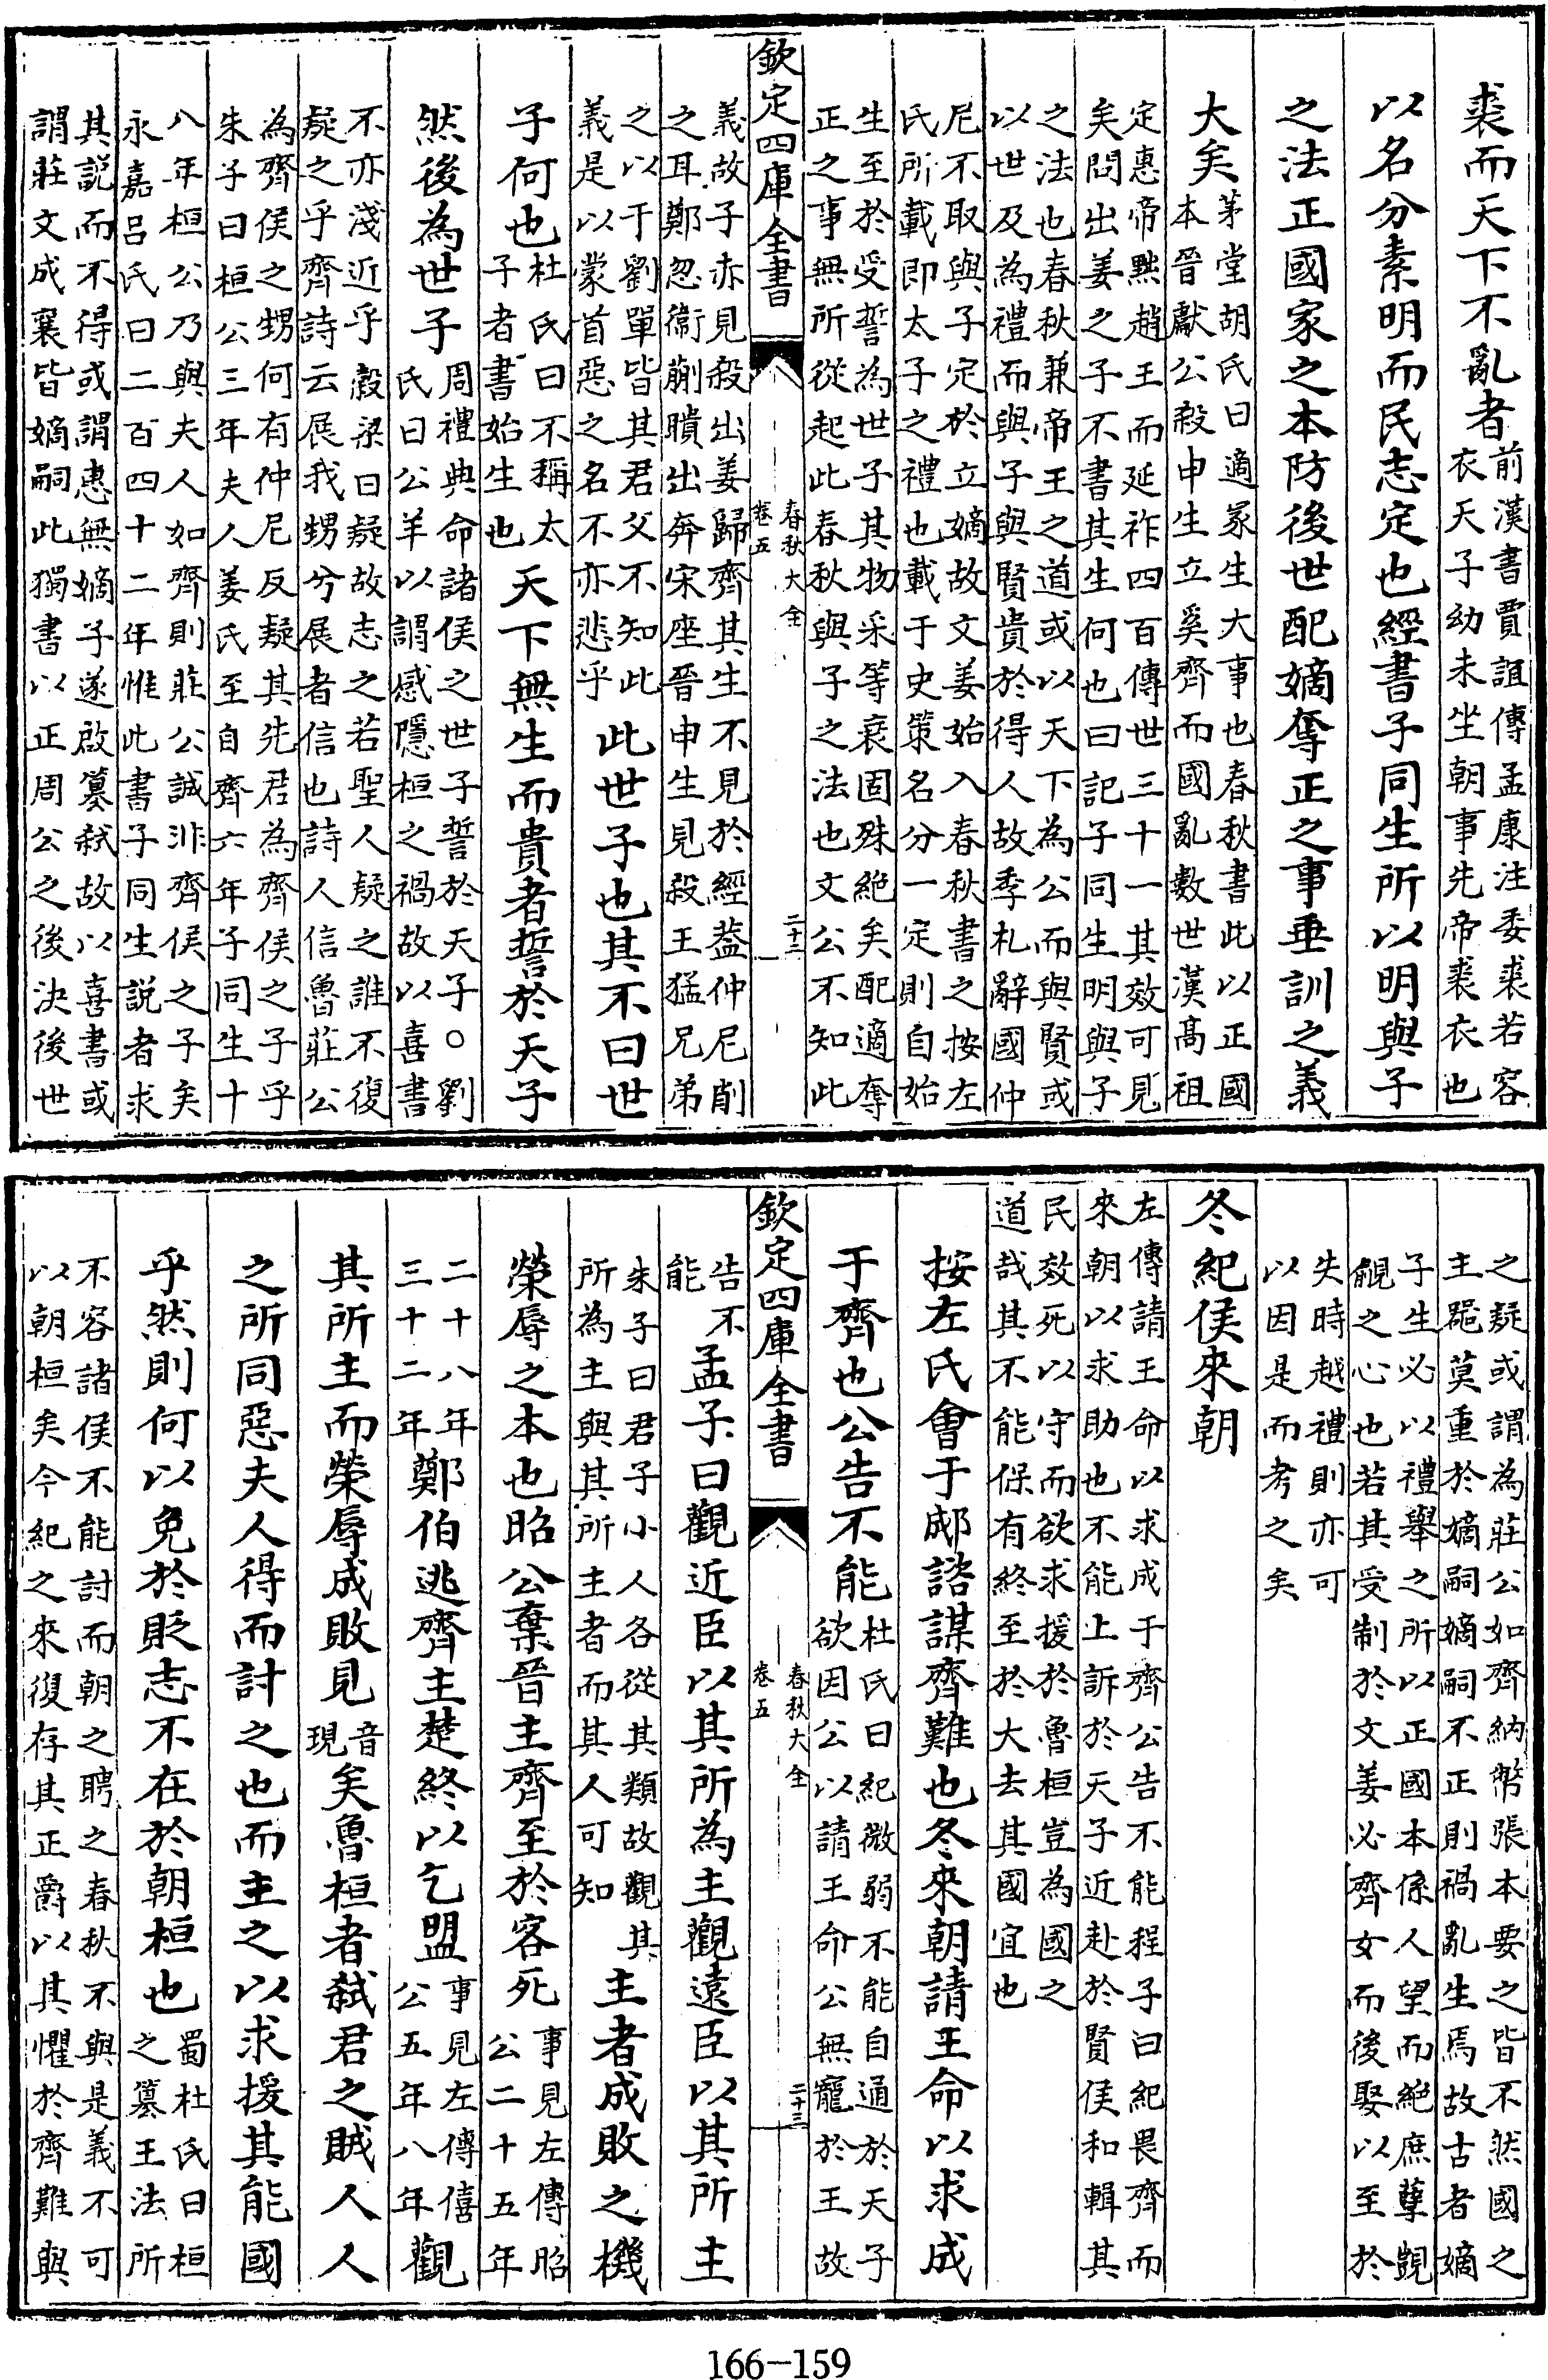 裘而天下不亂者前漢書賈誼傳孟康注委裘若容
衣天子幼未坐朝事先帝裘衣也
以名分素明而民志定也經書子同生所以明與子
之法正國家之本防後世配嫡奪正之事垂訓之義
大矣茅堂胡氏曰適冢生大事也春秋書此以正國
本晉獻公殺申生立奚齊而國亂數世漢髙祖
定惠帝黙趙王而延祚四百傳世三十一其效可見
矣問出姜之子不書其生何也曰記子同生明與子
之法也春秋兼帝王之道或以天下為公而與賢或
以世及為禮而與子與賢貴於得人故季札辭國仲
尼不取與子定於立嫡故文姜始入春秋書之按左
氏所載即太子之禮也載于史策名分一定則自始
生至於受誓為世子其物采等衰固殊絶矣配適奪
正之事無所從起此春秋與子之法也文公不知此
欽定四庫全書
春秋大全
卷五
二十二
義故子赤見殺出姜歸齊其生不見於經葢仲尼削
之耳鄭忽衞蒯聵出奔宋座晉申生見殺王猛兄弟
之以于劉單皆其君父不知此
義是以蒙首惡之名不亦悲乎
此世子也其不曰世
子何也杜氏曰不稱太
子者書始生也
天下無生而貴者誓於天子
然後為世子周禮典命諸侯之世子誓於天子○劉
氏曰公羊以謂感隱桓之禍故以喜書
不亦淺近乎榖梁曰疑故志之若聖人疑之誰不復
疑之乎齊詩云展我甥兮展者信也詩人信魯莊公
為齊侯之甥何有仲尼反疑其先君為齊侯之子乎
朱子曰桓公三年夫人姜氏至自齊六年子同生十
八年桓公乃與夫人如齊則莊公誠非齊侯之子矣
永嘉吕氏曰二百四十二年惟此書子同生說者求
其說而不得或謂惠無嫡子遂啟簒弑故以喜書或
謂莊文成襄皆嫡嗣此獨書以正周公之後決後世
之疑或謂為莊公如齊納幣張本要之皆不然國之
主器莫重於嫡嗣嫡嗣不正則禍亂生焉故古者嫡
子生必以禮舉之所以正國本係人望而絶庶孽覬
覦之心也若其受制於文姜必齊女而後娶以至於
失時越禮則亦可
以因是而考之矣
冬紀侯來朝
左傳請王命以求成于齊公告不能程子曰紀畏齊而
來朝以求助也不能上訴於天子近赴於賢侯和輯其
民效死以守而欲求援於魯桓豈為國之
道哉其不能保有終至於大去其國宜也
按左氏會于郕諮謀齊難也冬來朝請王命以求成
于齊也公告不能杜氏曰紀微弱不能自通於天子
欲因公以請王命公無寵於王故
欽定四庫全書
春秋大全
卷五
二十三
告不
能
孟子曰觀近臣以其所為主觀遠臣以其所主
朱子曰君子小人各從其類故觀其
所為主與其所主者而其人可知
主者成敗之機
榮辱之本也昭公棄晉主齊至於客死事見左傳昭
公二十五年
二十八年
三十二年
鄭伯逃齊主楚終以乞盟事見左傳僖
公五年八年
觀
其所主而榮辱成敗見音
現
矣魯桓者弑君之賊人人
之所同惡夫人得而討之也而主之以求援其能國
乎然則何以免於貶志不在於朝桓也蜀杜氏曰桓
之簒王法所
不容諸侯不能討而朝之聘之春秋不與是義不可
以朝桓矣今紀之來復存其正爵以其懼於齊難與
166-159